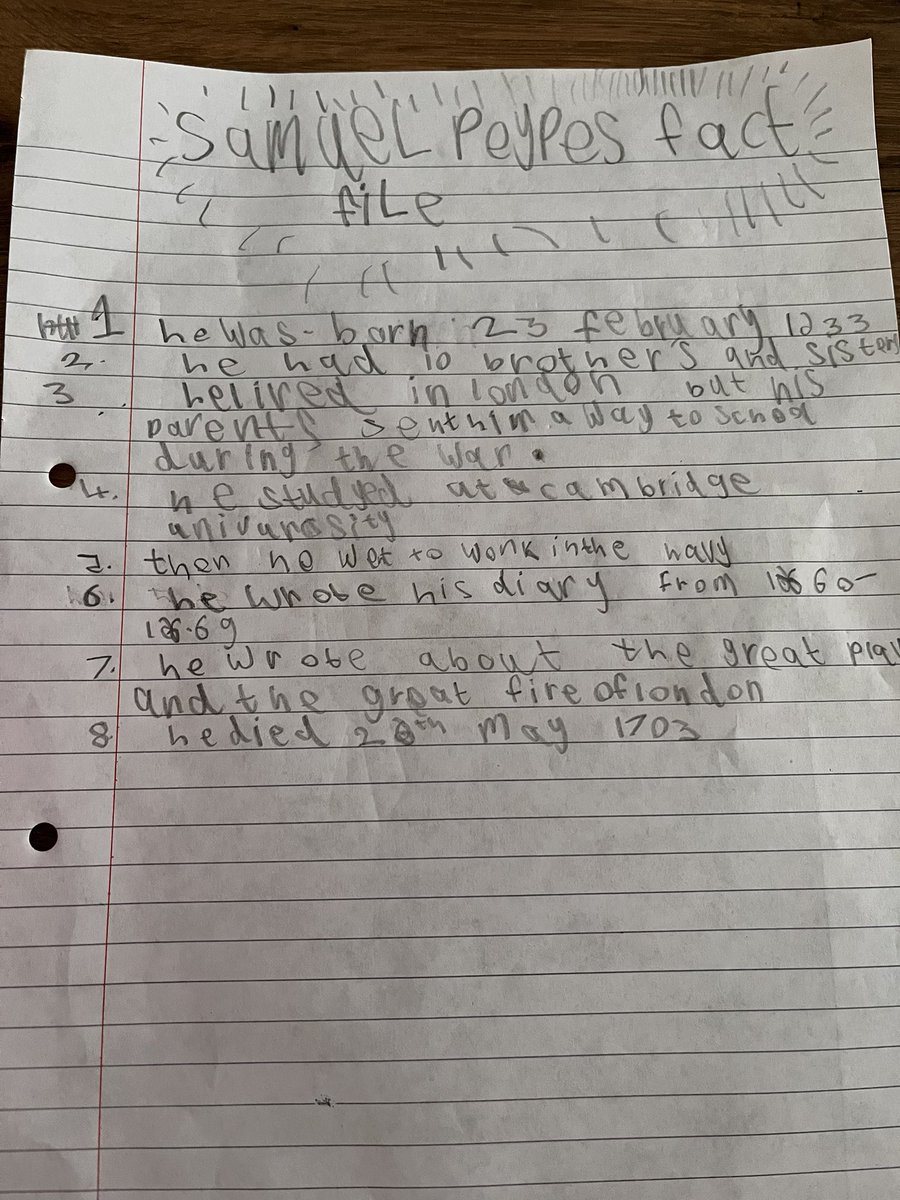 Samuel Peypes fact
file
1 he was-born 23 february 1233
2. he had 10 brother's and sisters
3 he lired in london but his
parents sent him a way to school
during the war.
4. he studyed at cambridge
univarosity
5. then he wet to work in the navy
6. he wrote his diary from 1660-
1669
7. he wrote about the great plau
and the great fire of london
8. he died 26th May 1703